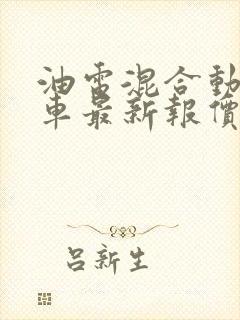 油電混合動
車最新報價
呂新生